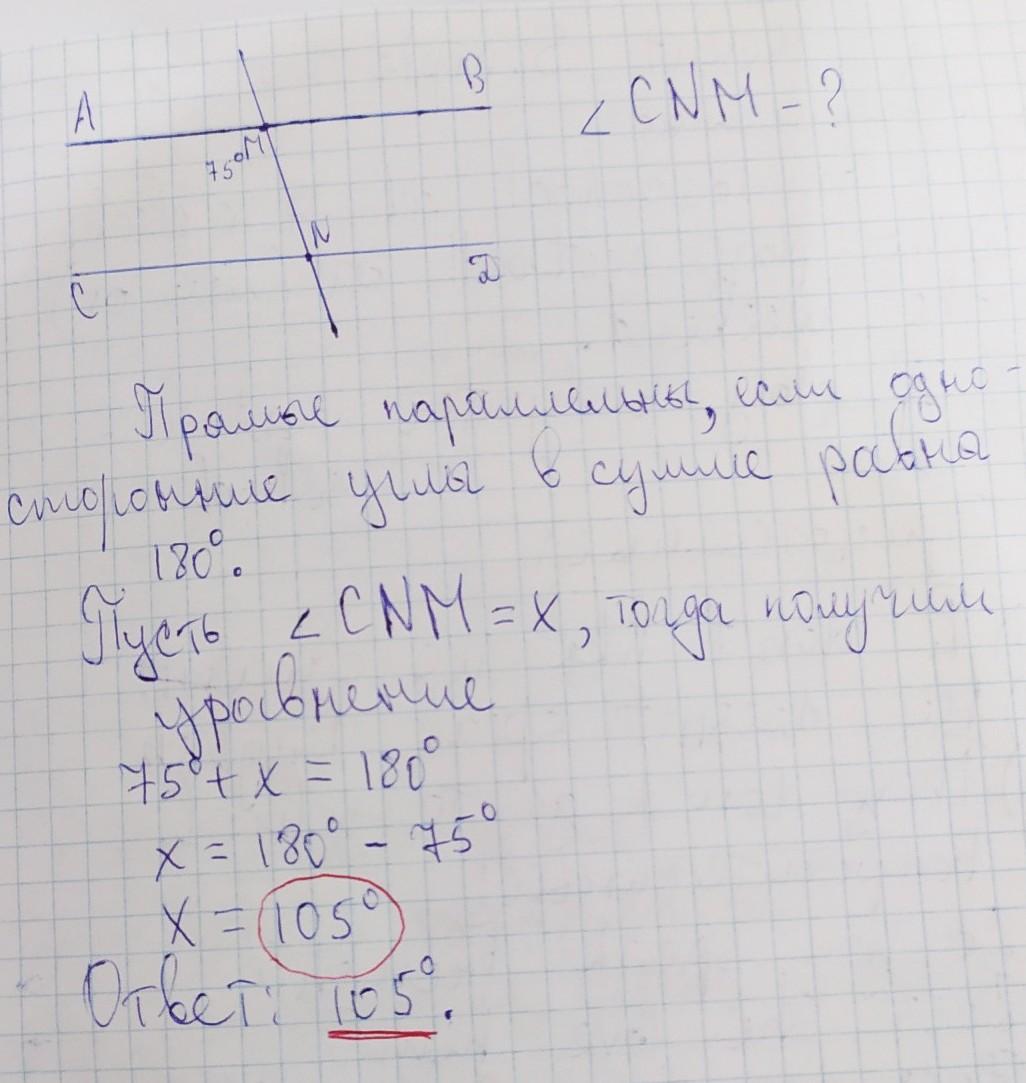 A
B
∠ CNM - ?
75° M
N
C
D
Прямые параллельны, если одно-
сторонние углы в сумме равна
180°.
Пусть ∠ CNM = x, тогда получим
уравнение
75° + x = 180°
x = 180° - 75°
x = 105°
Ответ: 105°.